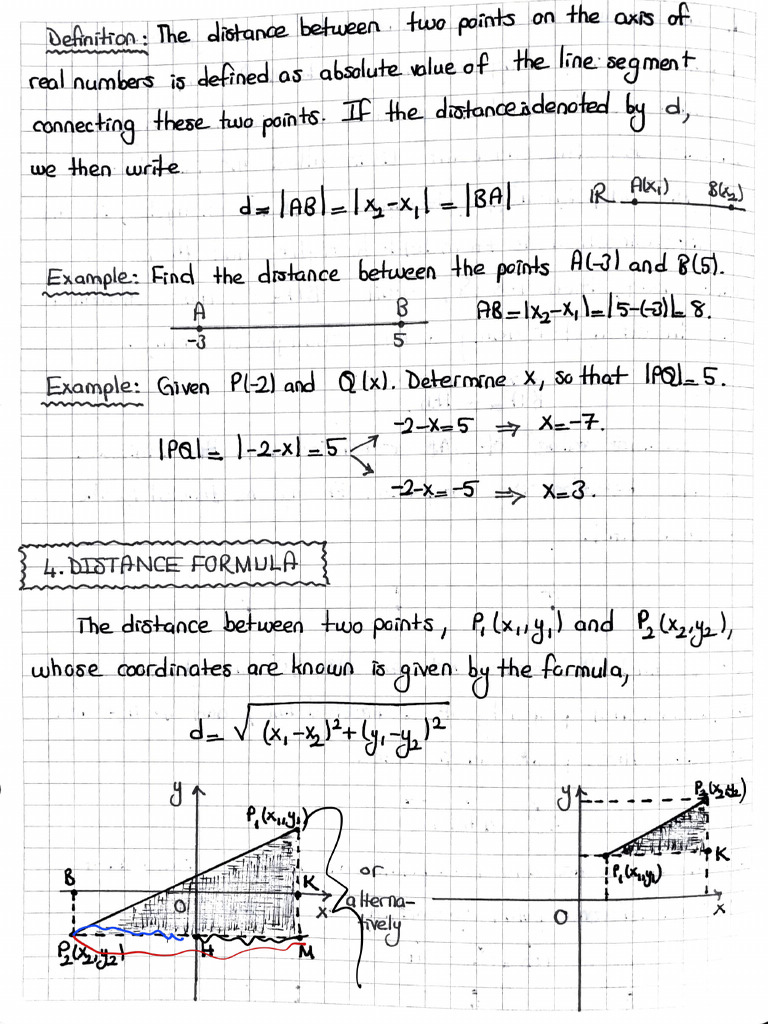 Definition: The distance between two points on the axis of
real numbers is defined as absolute value of the line segment
connecting these two points. If the distance is denoted by d,
we then write
d = |AB| = |x₂-x₁| = |BA|
IR A(x₁) B(x₂)
Example: Find the distance between the points A(-3) and B(5).
A B
-3 5
AB = |x₂-x₁| = |5-(-3)| = 8.
Example: Given P(-2) and Q(x). Determine x, so that |PQ| = 5.
-2-x=5 ⇒ x=-7.
|PQ| = |-2-x| = 5
-2-x=-5 ⇒ x=3.
4. DISTANCE FORMULA
The distance between two points, P₁(x₁,y₁) and P₂(x₂,y₂),
whose coordinates are known is given by the formula,
d = √(x₁-x₂)²+(y₁-y₂)²
y
P₁(x₁,y₁)
B
K
O
x
P₂(x₂,y₂)
H
M
or
alterna-
tively
y
P₂(x₂,y₂)
K
P₁(x₁,y₁)
O
x